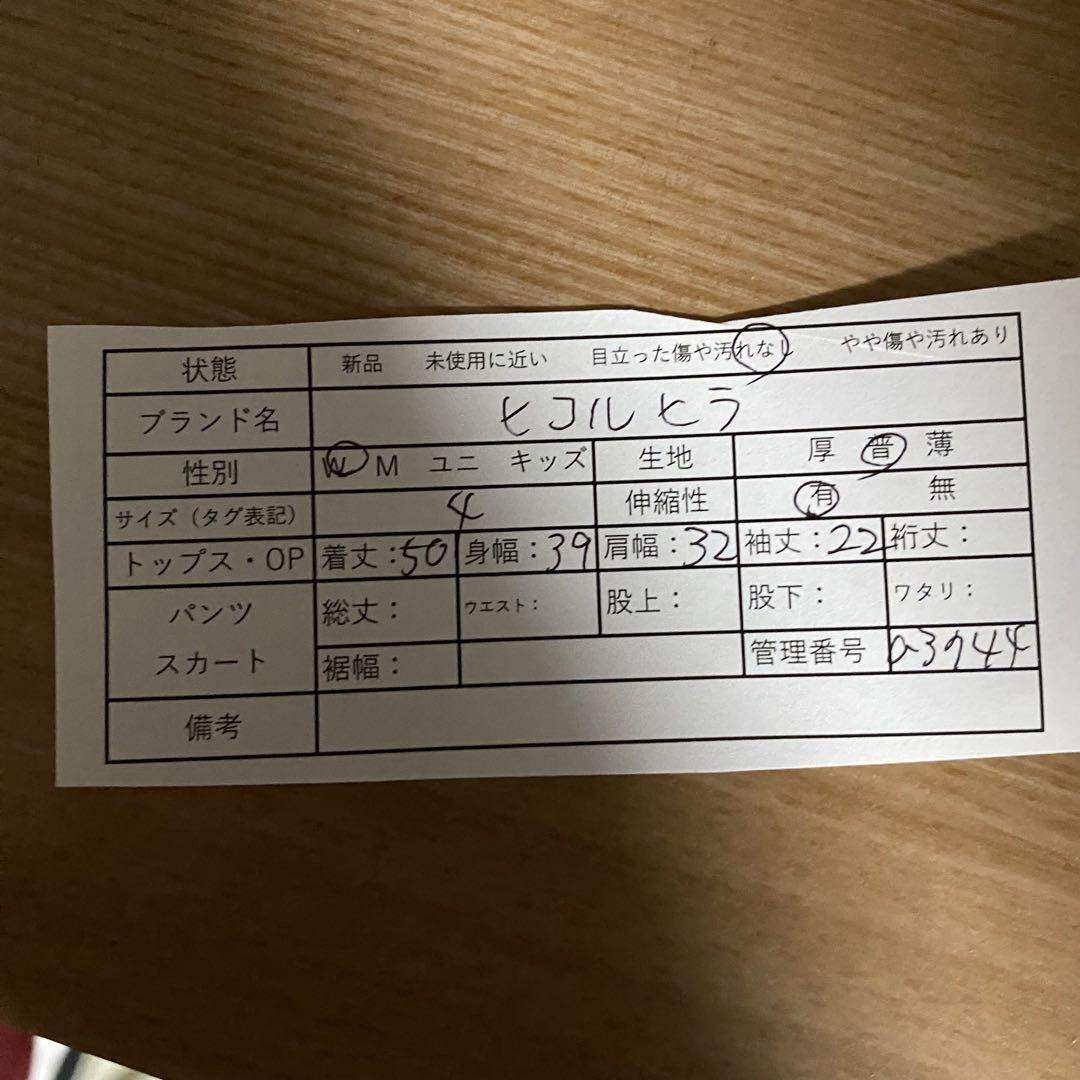 状態 新品 未使用に近い 目立った傷や汚れなし やや傷や汚れあり
ブランド名 ヒコルヒラ
性別 W M ユニ キッズ 生地 厚 普 薄
サイズ（タグ表記） 4 伸縮性 有 無
トップス・OP 着丈：50 身幅：39 肩幅：32 袖丈：22 裄丈：
パンツ 総丈： ウエスト： 股上： 股下： ワタリ：
スカート 裾幅： 管理番号 a3944
備考